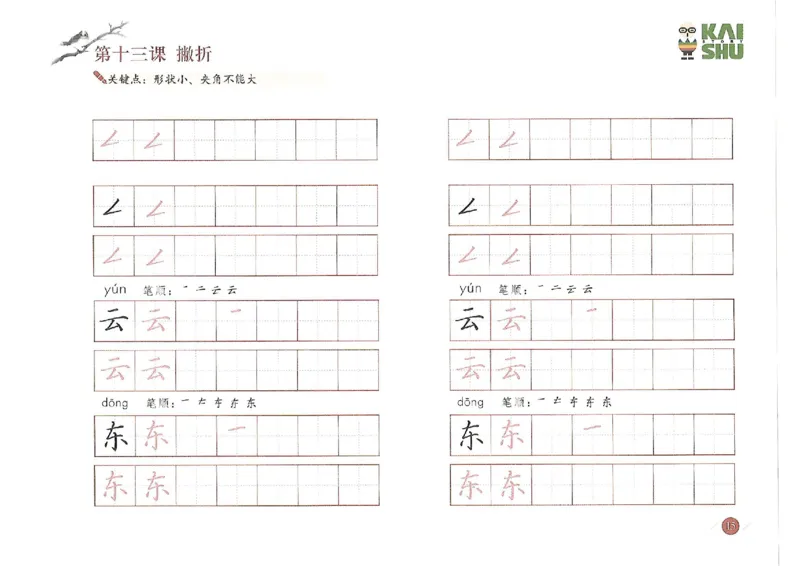 第十三课 撇折
关键点：形状小、夹角不能大
KAI
STORY
SHU
𠃋 𠃋
𠃋 𠃋
𠃋 𠃋
yún 笔顺：一 二 云 云
云 云 一
云 云
dōng 笔顺：一 𠂇 车 东 东
东 东 一
东 东
𠃋 𠃋
𠃋 𠃋
𠃋 𠃋
yún 笔顺：一 二 云 云
云 云 一
云 云
dōng 笔顺：一 𠂇 车 东 东
东 东 一
东 东